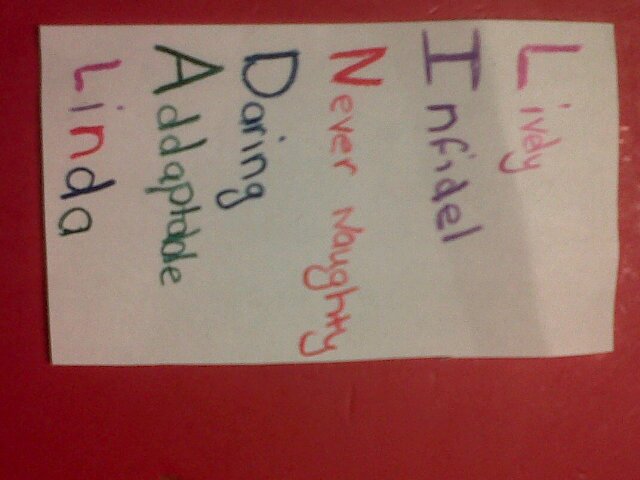 Lively
Infidel
Never Naughty
Daring
Addaptable
Linda